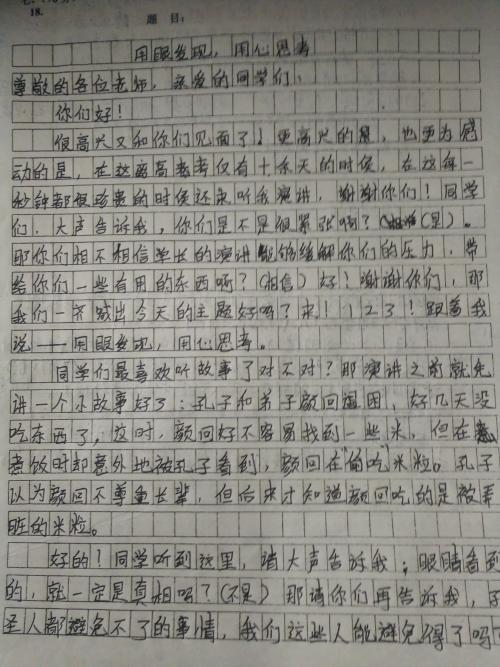 18.
题 目：
用眼发现，用心思考
尊敬的各位老师，亲爱的同学们：
你们好！
很高兴又和你们见面了！更高兴的是，也更为感
动的是，在这离高考仅有十余天的时候，在这每一
秒钟都很珍贵的时候还来听我演讲，谢谢你们！同学
们，大声告诉我，你们是不是很紧张啊？（是）。
那你们相不相信学长的演讲能够缓解你们的压力，带
给你们一些有用的东西啊？（相信）好！谢谢你们，那
我们一齐喊出今天的主题好吗？来！123！跟着我
说——用眼发现，用心思考。
同学们最喜欢听故事了对不对？那演讲之前就先
讲一个小故事好了：孔子和弟子颜回遇困，好几天没
吃东西了，这时，颜回好不容易找到一些米，但在
煮饭时却意外地被孔子看到，颜回在"偷吃"米粒。孔子
以为颜回不尊重长辈，但后来才知道颜回吃的是被弄
脏的米粒。
好的！同学听到这里，请大声告诉我；眼睛看到
的，就一定是真相吗？（不是）那请你们再告诉我，
圣人都避免不了的事情，我们这些人能避免得了吗？